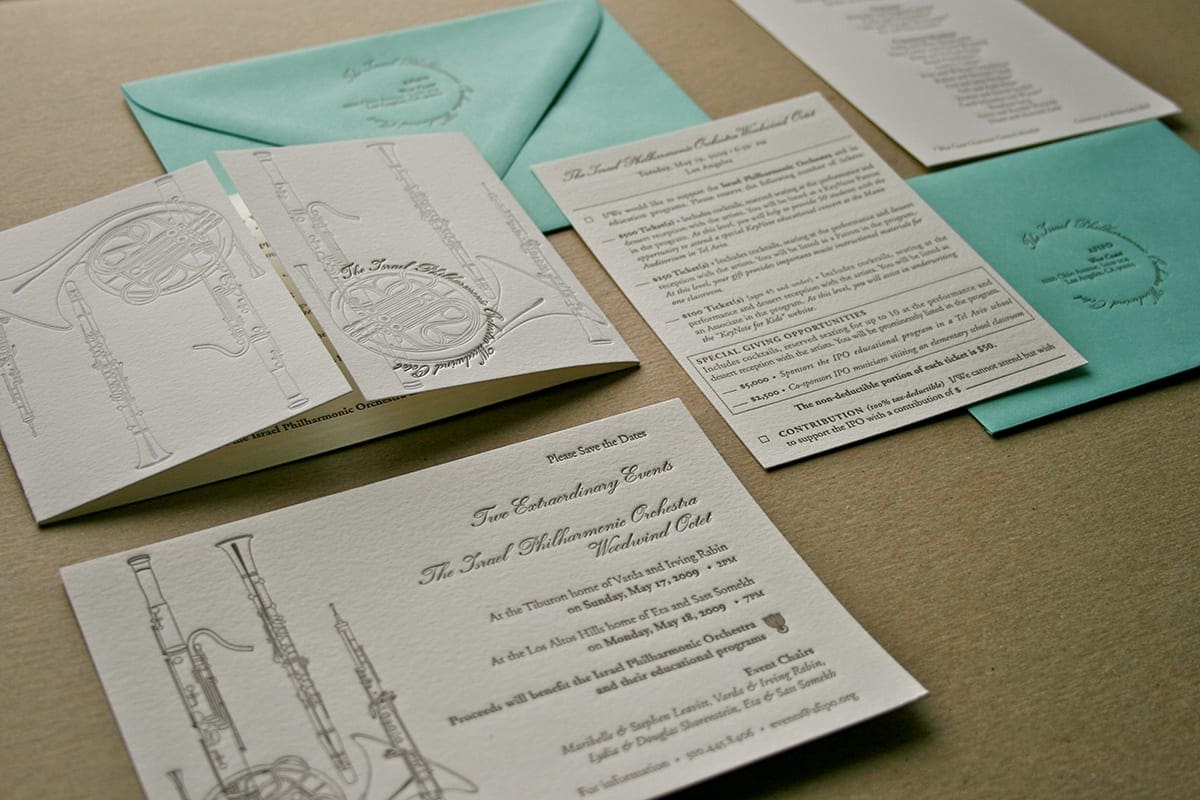 The Israel Philharmonic
AFIPO
West Coast
Los Angeles, CA
The Israel Philharmonic Orchestra Woodwind Octet
the Israel Philharmonic Orchestra
The Israel Philharmonic Orchestra Woodwind Octet
Tuesday, May 19, 2009 • 6:30 PM
Los Angeles
I/We would like to support the Israel Philharmonic Orchestra and its
education programs. Please reserve the following number of tickets:
$500 Ticket(s) • Includes cocktails, reserved seating at the performance and
dessert reception with the artists. You will be listed as a KeyNote Patron
in the program. At this level, you will help to provide 50 students with the
opportunity to attend a special KeyNote educational concert at the Mann
Auditorium in Tel Aviv.
$250 Ticket(s) • Includes cocktails, seating at the performance and dessert
reception with the artists. You will be listed as a Patron in the program.
At this level, your gift provides important instructional materials for
one classroom.
$100 Ticket(s) (ages 45 and under) • Includes cocktails, seating at the
performance and dessert reception with the artists. You will be listed as
an Associate in the program. At this level, you will assist in underwriting
the "KeyNote for Kids" website.
SPECIAL GIVING OPPORTUNITIES
Includes cocktails, reserved seating for up to 10 at the performance and
dessert reception with the artists. You will be prominently listed in the program.
$5,000 • Sponsors the IPO educational program in a Tel Aviv school
$2,500 • Co-sponsors IPO musician visiting an elementary school classroom
The non-deductible portion of each ticket is $50.
CONTRIBUTION (100% tax-deductible) I/We cannot attend but wish
to support the IPO with a contribution of $
The Israel Philharmonic Orchestra Woodwind Octet
AFIPO
West Coast
Los Angeles, CA
Please Save the Dates
Two Extraordinary Events
The Israel Philharmonic Orchestra
Woodwind Octet
At the Tiburon home of Varda and Irving Rabin
on Sunday, May 17, 2009 • 2PM
At the Los Altos Hills home of Eta and Sass Somekh
on Monday, May 18, 2009 • 7PM
Proceeds will benefit the Israel Philharmonic Orchestra
and their educational programs
Event Chairs
Maribelle & Stephen Leavitt, Varda & Irving Rabin,
Lydia & Douglas Shorenstein, Eta & Sass Somekh
For information • 310.445.8406 • events@afipo.org